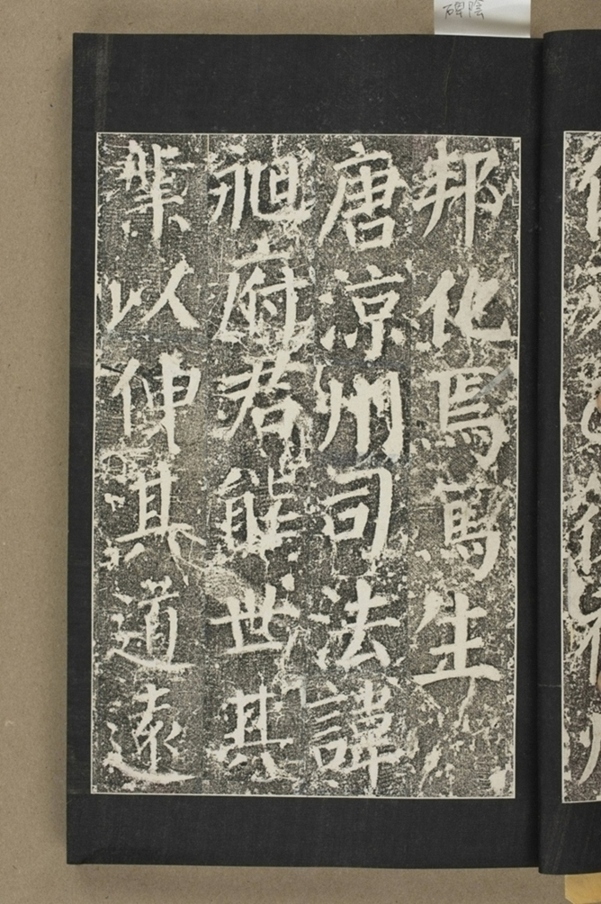 邦化焉篤生
唐凉州司法諱
昶府君能世其
業以俾其道遠